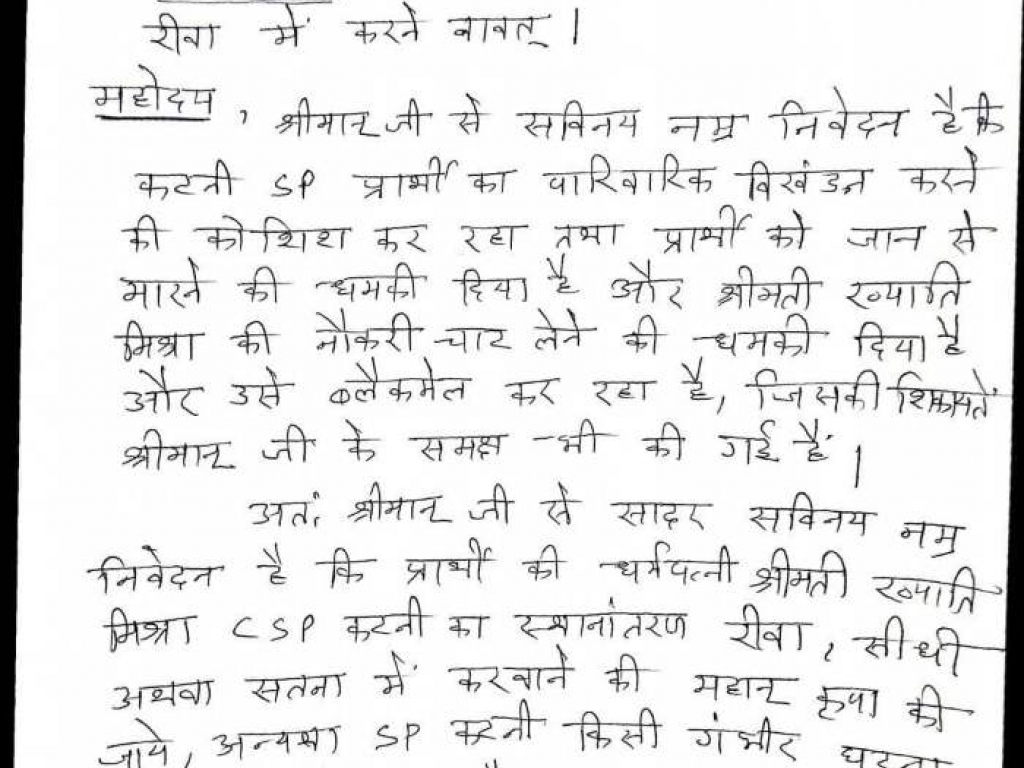 रीवा में करने वावत् ।
महोदय, श्रीमान् जी से सविनय नम्र निवेदन है कि
कटनी SP प्रार्थी का पारिवारिक विखंडन करने
की कोशिश कर रहा तथा प्रार्थी को जान से
मारने की धमकी दिया है और श्रीमती ख्याति
मिश्रा की नौकरी चाट लेने की धमकी दिया है
और उसे ब्लैकमेल कर रहा है, जिसकी शिकायतें
श्रीमान् जी के समक्ष भी की गई हैं ।
अतः श्रीमान् जी से सादर सविनय नम्र
निवेदन है कि प्रार्थी की धर्मपत्नी श्रीमती ख्याति
मिश्रा CSP कटनी का स्थानांतरण रीवा, सीधी
अथवा सतना में करवाने की महान् कृपा की
जाये, अन्यथा SP कटनी किसी गंभीर घटना